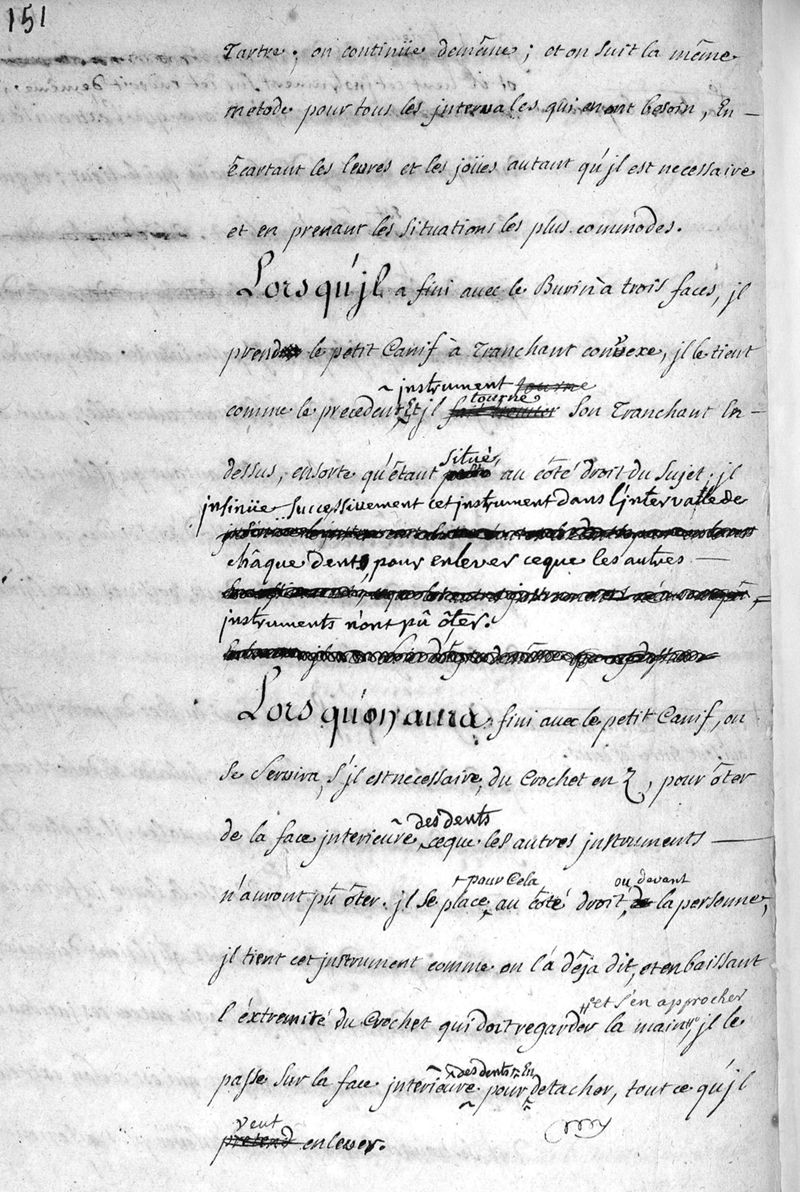 151
Tartre; on continüe demême; et on suit la même
métode pour tous les jntervales qui en ont besoin, En-
écartant les levres et les joües autant qu'jl est necessaire
et en prenant les situations les plus commodes.
Lorsqu'jl a fini avec le Burin à trois faces, jl
prend le petit Canif à Tranchant convexe, jl le tient
jnstrument tourne
comme le precedent Et jl tourne son Tranchant En-
dessus, ensorte qu'êtant situé au côté droit du sujet, jl
jnsinüe successivement cet jnstrument dans l'jntervalle de
châque dent, pour enlever ceque les autres
jnstruments n'ont pû ôter.
Lorsqu'on aura fini avec le petit Canif, on
se servira, s'jl est necessaire, du Crochet en Z, pour ôter
de la face jnterieure des dents ceque les autres jnstruments
n'auront pû ôter. jl se place pour Cela au côté droit, ou devant la personne,
jl tient cet jnstrument comme on l'a déja dit, et en baissant
l'éxtremité du Crochet qui doit regarder la main, et s'en approcher jl le
passe sur la face jnterieure des dents pour En detacher, tout ce qu'jl
veut
pretend enlever.